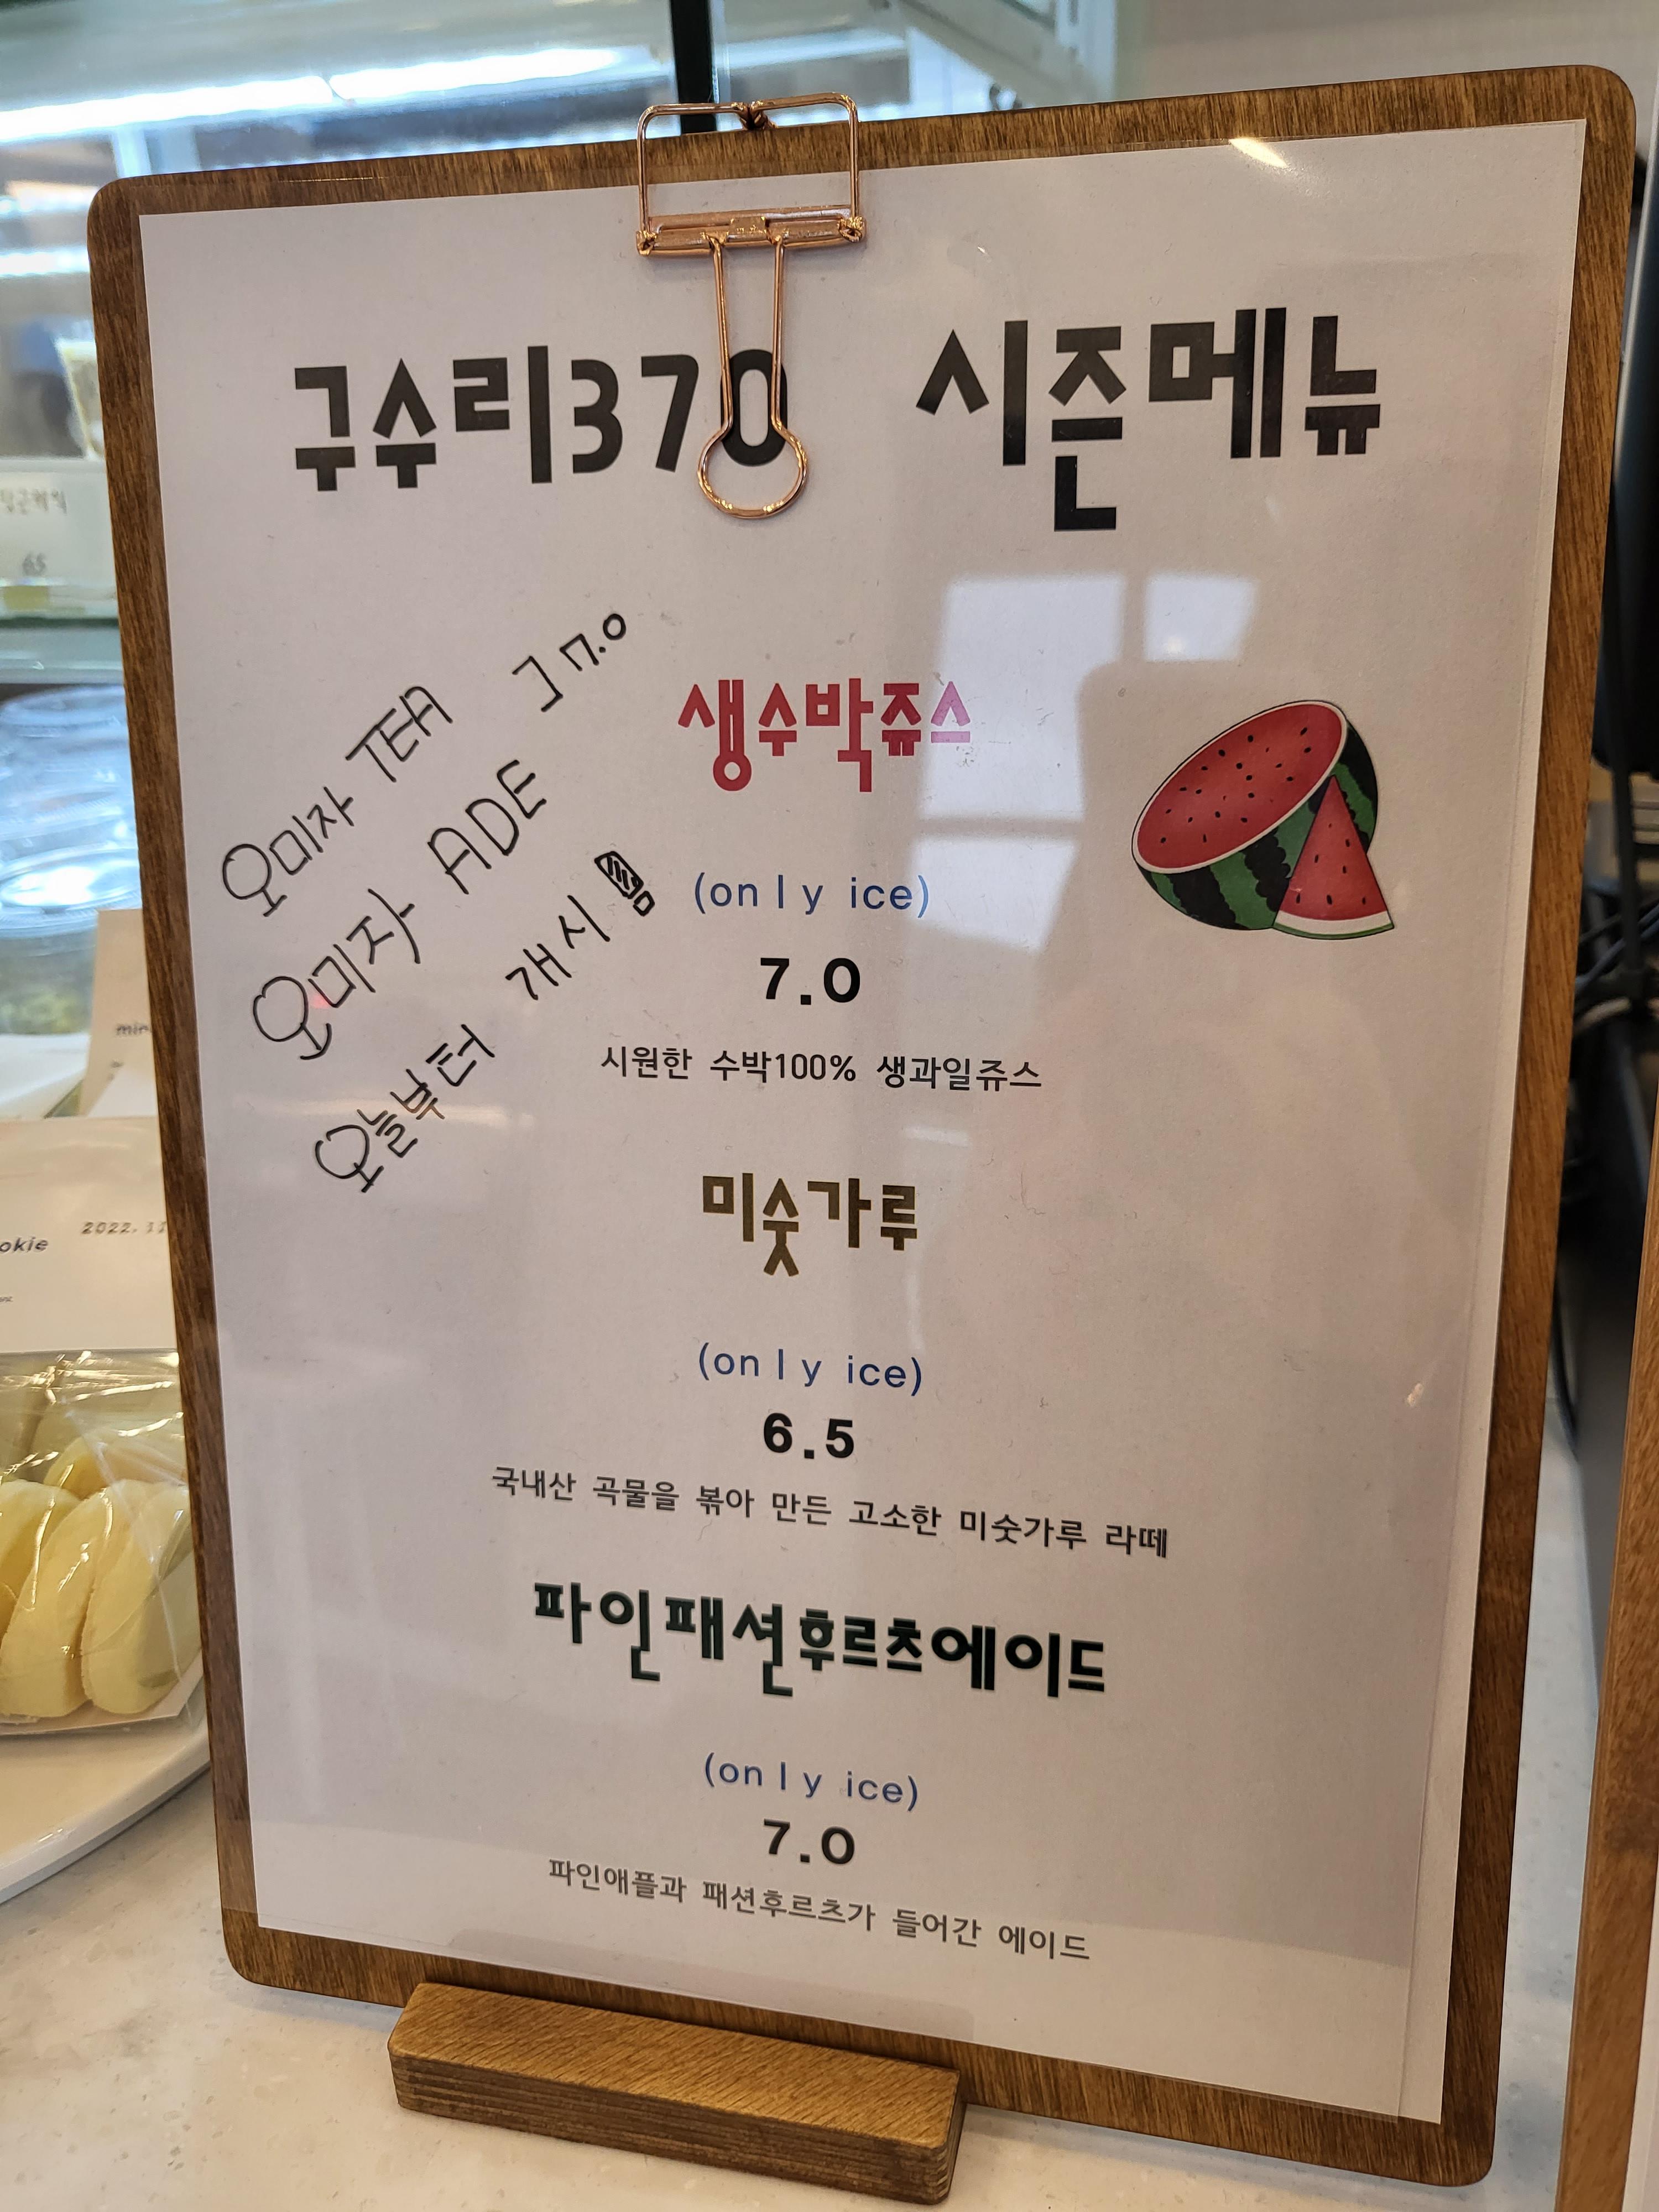 구수리370 시즌메뉴
오미자 TEA ] 7.0
오미자 ADE
오늘부터 개시
생수박쥬스
(only ice)
7.0
시원한 수박100% 생과일쥬스
미숫가루
(only ice)
6.5
국내산 곡물을 볶아 만든 고소한 미숫가루 라떼
파인패션후르츠에이드
(only ice)
7.0
파인애플과 패션후르츠가 들어간 에이드
당근케익
65
2022.11
okie